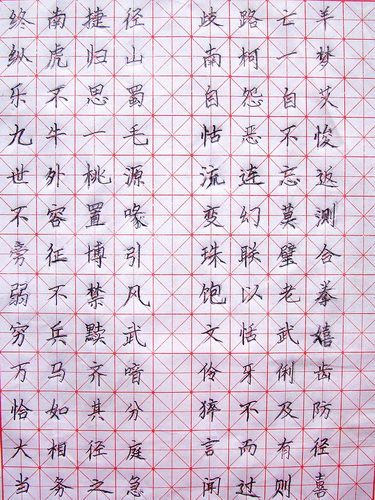 终南捷径 歧路亡羊
纵虎归山 南柯一梦
乐不思蜀 自怨自艾
九牛一毛 怙恶不悛
世外桃源 流连忘返
不容置喙 变幻莫测
旁征博引 珠联璧合
弱不禁风 饱以老拳
穷兵黩武 文恬武嬉
万马齐喑 伶牙俐齿
恰如其分 猝不及防
大相径庭 言而有径
当务之急 闻过则喜